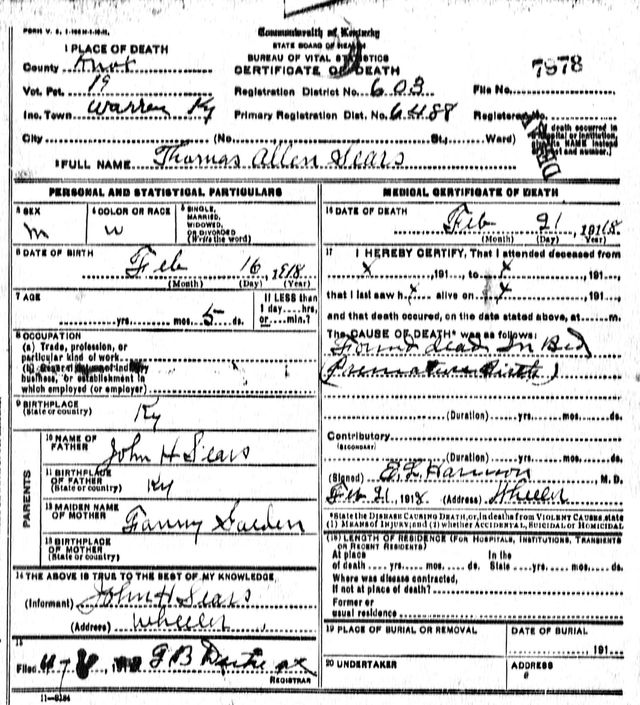 FORM V. S. 1-
Commonwealth of Kentucky
STATE BOARD OF HEALTH
BUREAU OF VITAL STATISTICS
CERTIFICATE OF DEATH
1 PLACE OF DEATH
County Knox
Vot. Pct. 19
Inc. Town Warren Ky
City (No. St.; Ward)
Registration District No. 603
Primary Registration Dist. No. 6488
File No. 7978
Registered No.
DELAYED
2 FULL NAME Thomas Allen Sears
PERSONAL AND STATISTICAL PARTICULARS
3 SEX m
4 COLOR OR RACE w
5 SINGLE, MARRIED, WIDOWED, OR DIVORCED (Write the word)
6 DATE OF BIRTH Feb 16, 1918
(Month) (Day) (Year)
7 AGE yrs. mos. 5 ds.
If LESS than 1 day....hrs. or....min.?
8 OCCUPATION
(a) Trade, profession, or particular kind of work
(b) General nature of industry business, or establishment in which employed (or employer)
9 BIRTHPLACE (State or country) Ky
PARENTS
10 NAME OF FATHER John H Sears
11 BIRTHPLACE OF FATHER (State or country) Ky
12 MAIDEN NAME OF MOTHER Fanny
13 BIRTHPLACE OF MOTHER (State or country)
14 THE ABOVE IS TRUE TO THE BEST OF MY KNOWLEDGE
(Informant) John H Sears
(Address) Wheeler
15
Filed 191 G B
REGISTRAR
11—3184
MEDICAL CERTIFICATE OF DEATH
16 DATE OF DEATH Feb 21, 1918
(Month) (Day) (Year)
17 I HEREBY CERTIFY, That I attended deceased from
x, 191..., to x, 191...,
that I last saw h x alive on x, 191...,
and that death occurred, on the date stated above, at m.
The CAUSE OF DEATH* was as follows:
Found dead In Bed
(Premature Birth)
(Duration) yrs. mos. ds.
Contributory
(SECONDARY)
(Duration) yrs. mos. ds.
(Signed) M. D.
Feb 21, 1918 (Address) Wheeler
*State the DISEASE CAUSING DEATH, or, in deaths from VIOLENT CAUSES, state
(1) MEANS OF INJURY; and (2) whether ACCIDENTAL, SUICIDAL or HOMICIDAL
(18) LENGTH OF RESIDENCE (FOR HOSPITALS, INSTITUTIONS, TRANSIENTS OR RECENT RESIDENTS)
At place of death yrs. mos. ds. In the State yrs. mos. ds.
Where was disease contracted,
If not at place of death?
Former or usual residence
19 PLACE OF BURIAL OR REMOVAL
DATE OF BURIAL
191
20 UNDERTAKER
ADDRESS